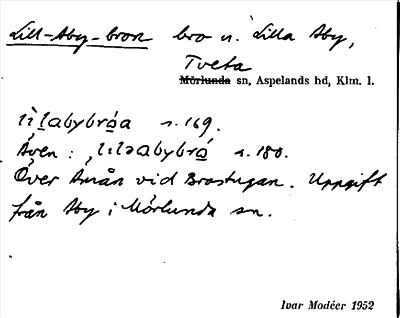 Lill-Åby-bron bro n. Lilla Åby,
Tveta
Mörlunda sn, Aspelands hd, Klm. l.
s. 169.
Även : s. 180.
Över Åmån vid Brostugan. Uppgift
från Åby i Mörlunda sn.
Ivar Modéer 1952